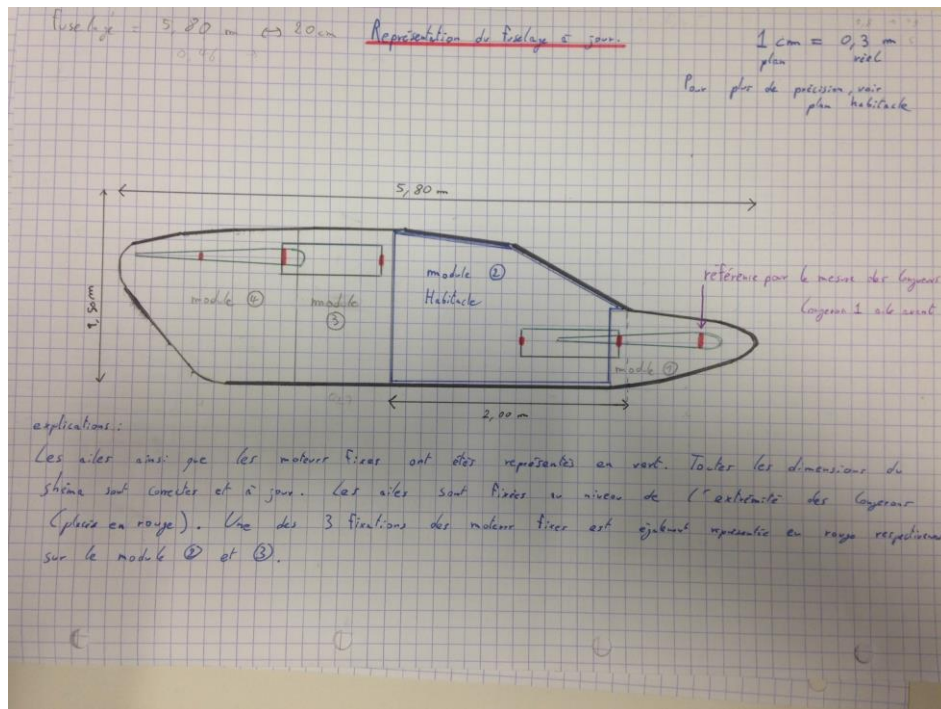 fuselage = 5,80 m ↔ 20 cm
Représentation du fuselage à jour.
1 cm = 0,3 m
plan réel
Pour plus de précision, voir
plan habitacle
5,80 m
1,50 m
module ②
Habitacle
module ④
module
③
module ①
référence pour la mesure des longerons
longeron 1 aile avant
2,00 m
explications :
Les ailes ainsi que les moteurs fixes ont étés représentés en vert. Toutes les dimensions du
shéma sont correctes et à jour. Les ailes sont fixées au niveau de l'extrémité des longerons
(placés en rouge). Une des 3 fixations des moteurs fixes est également représentée en rouge respectivement
sur le module ② et ③.